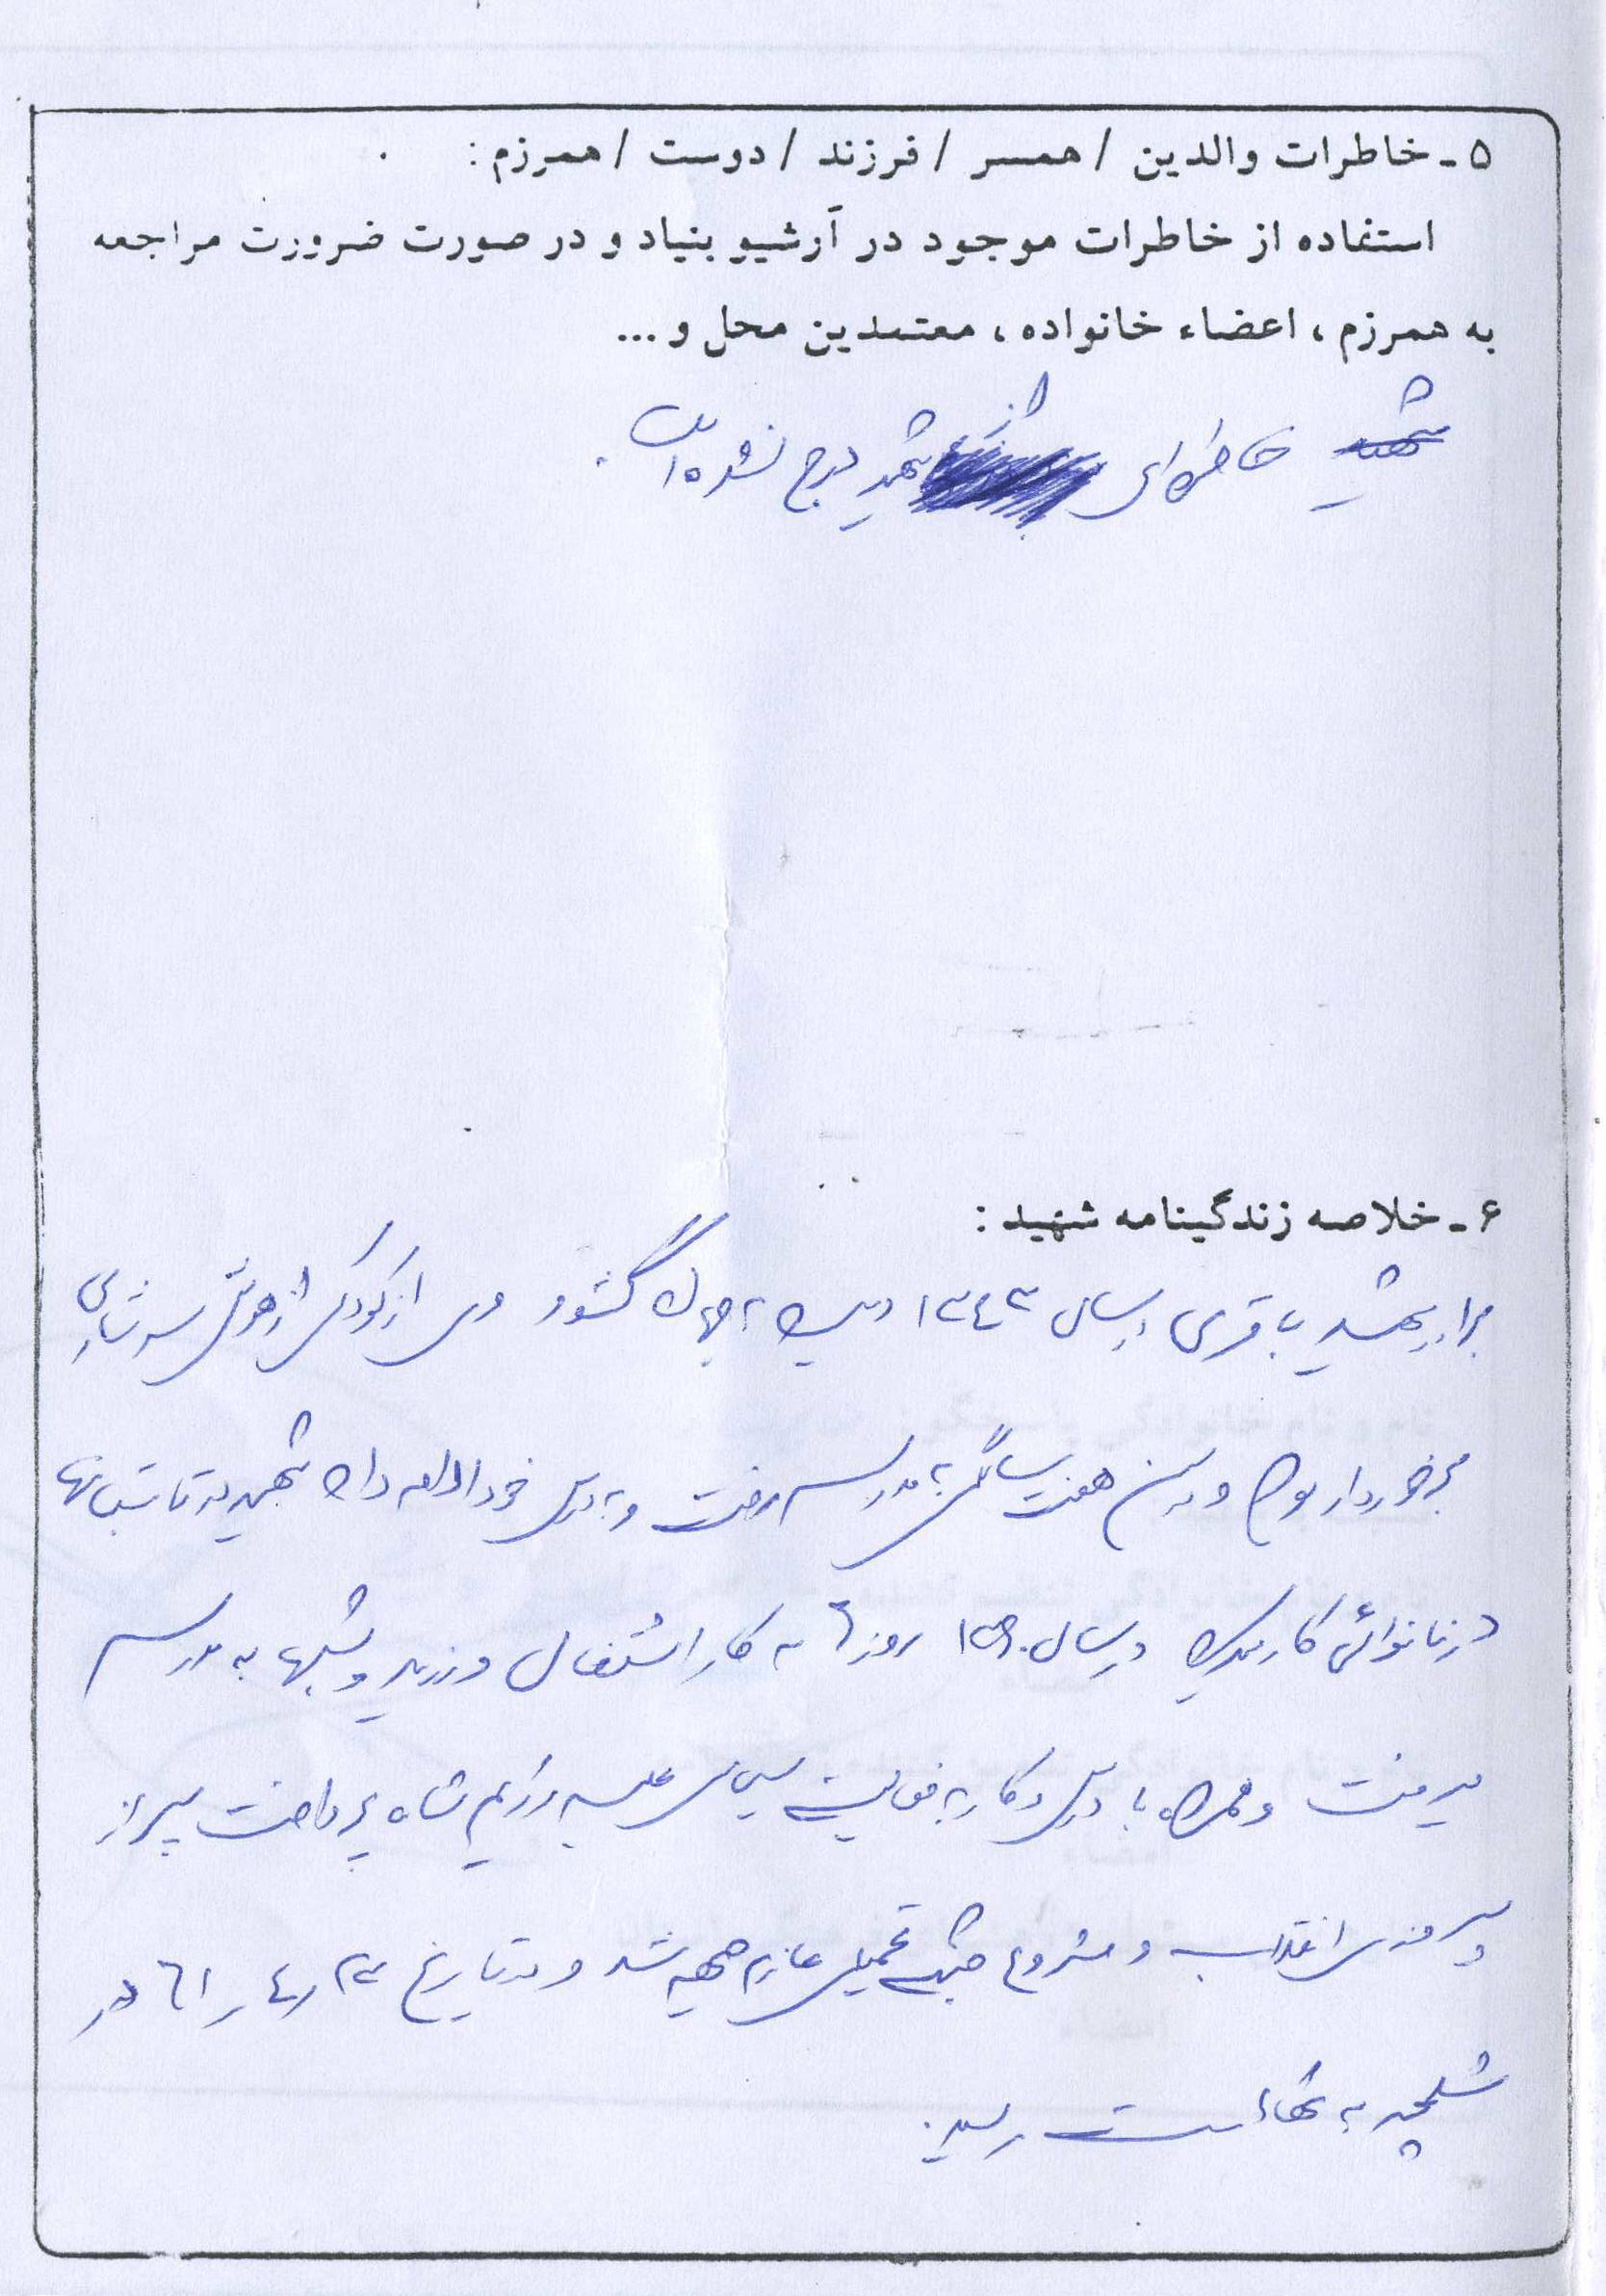 ۵ـ خاطرات والدین / همسر / فرزند / دوست / همرزم :
استفاده از خاطرات موجود در آرشیو بنیاد و در صورت ضرورت مراجعه
به همرزم ، اعضاء خانواده ، معتمدین محل و ...
شهید خاطره‌ای از شهید درج نشده است.
۶ـ خلاصه زندگینامه شهید :
برادر شهید باقری در سال ۱۳٤۳ دیده به جهان گشود وی از کودکی از هوش سرشاری
برخوردار بود و در سن هفت سالگی به مدرسه رفت و به درس خود ادامه داد شهید در تابستانها
در نانوائی کار میکرد و در سال روزها به کار اشتغال ورزید و شبها به مدرسه
میرفت و همراه با درس و کار به فعالیت سیاسی علیه رژیم شاه پرداخت پس از
پیروزی انقلاب و شروع جنگ تحمیلی عازم جبهه شد و در تاریخ ۲۳ر٤ر٦۱ در
شلمچه به شهادت رسید.